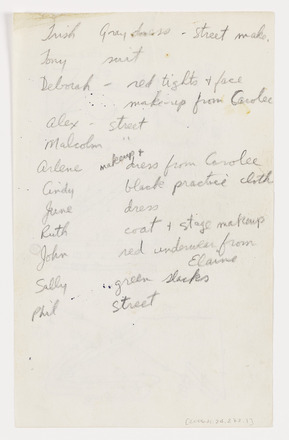 Trish Gray dress - street make.
Tony suit
Deborah - red tights + face
make-up from Carolee
Alex - street
Malcolm "
Arlene makeup + dress from Carolee
Andy black practice cloth
June dress
Ruth coat + stage makeup
John red underwear from
Elaine
Sally green slacks
Phil - street